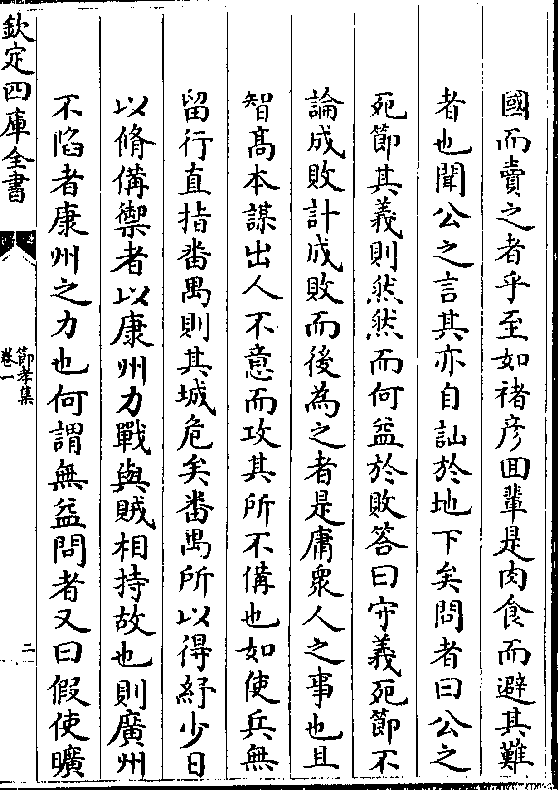 國而賣之者乎至如褚彦回輩是肉食而避其難
者也聞公之言其亦自訕於地下矣問者曰公之
死節其義則然然而何益於敗答曰守義死節不
論成敗計成敗而後為之者是庸衆人之事也且
智髙本謀出人不意而攻其所不備也如使兵無
留行直指番禺則其城危矣番禺所以得紓少日
以脩備禦者以康州力戰與賊相持故也則廣州
不陷者康州之力也何謂無益問者又曰假使曠
欽定四庫全書
節孝集
卷一
二